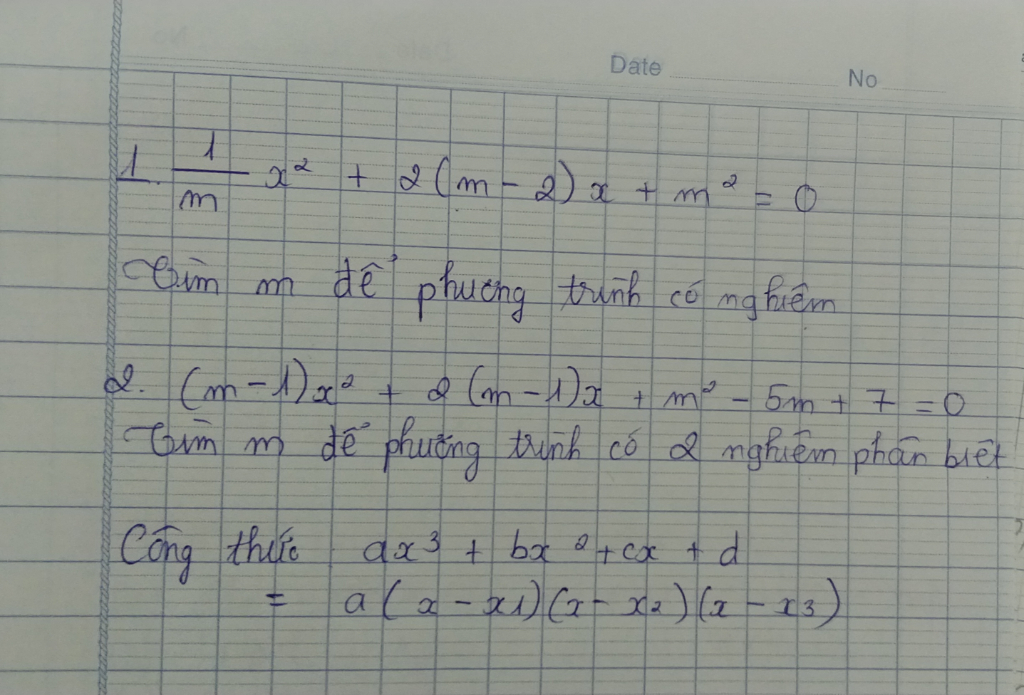 Date No
1. 1/m x² + 2(m - 2)x + m² = 0
Tìm m để phương trình có nghiệm
2. (m - 1)x² + 2(m - 1)x + m² - 5m + 7 = 0
Tìm m để phương trình có 2 nghiệm phân biệt
Công thức ax³ + bx² + cx + d
= a(x - x1)(x - x2)(x - x3)